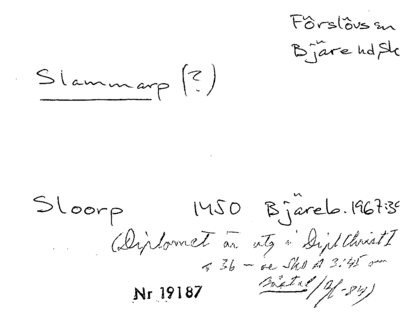 Förslövs sn
Bjäre hd, Sk
Slammarp (?)
Sloorp 1450 Bjäreb. 1967:3
(Diplomet är utg i Dipl Christ I
s 36 – se SkO A 3:45 om
Båstad /Bf -84)
Nr 19187